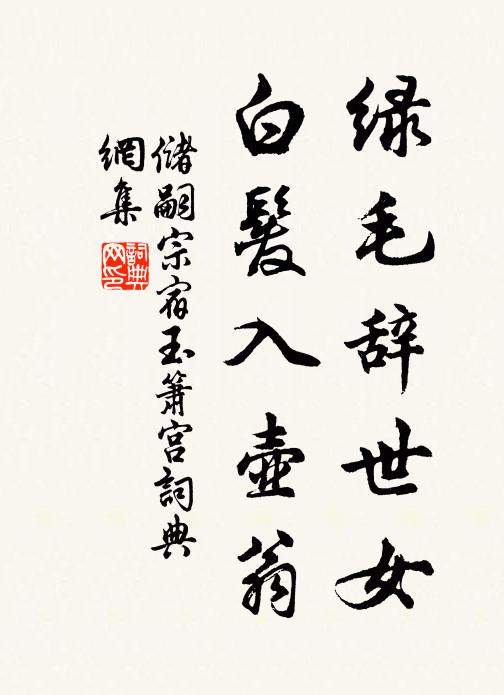 绿毛辞世女
白髮入壶翁
儲嗣宗宿玉箫宫詞典
網集
詞典网印